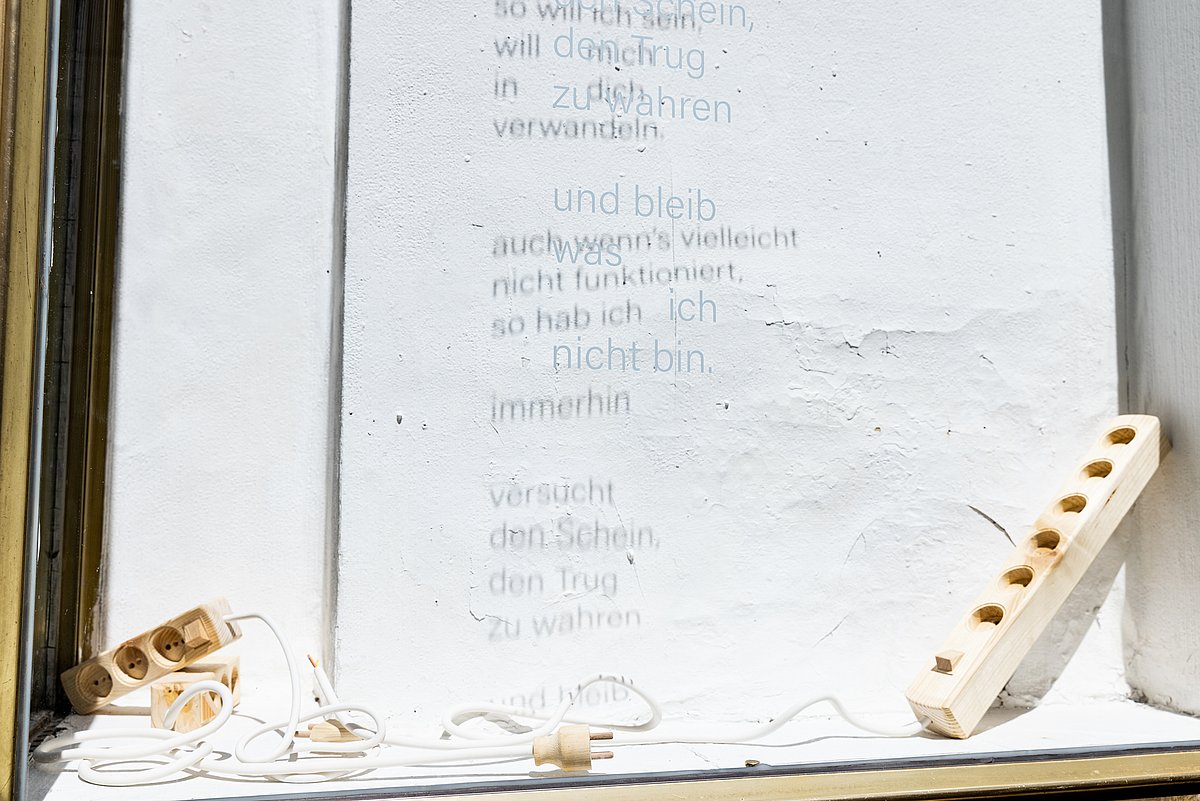 den Schein,
den Trug
zu wahren
und bleib
was
ich
nicht bin.
so will ich sein,
will mich
in dich
verwandeln.
auch wenn's vielleicht
nicht funktioniert,
so hab ich
immerhin
versucht
den Schein,
den Trug
zu wahren
und bleib